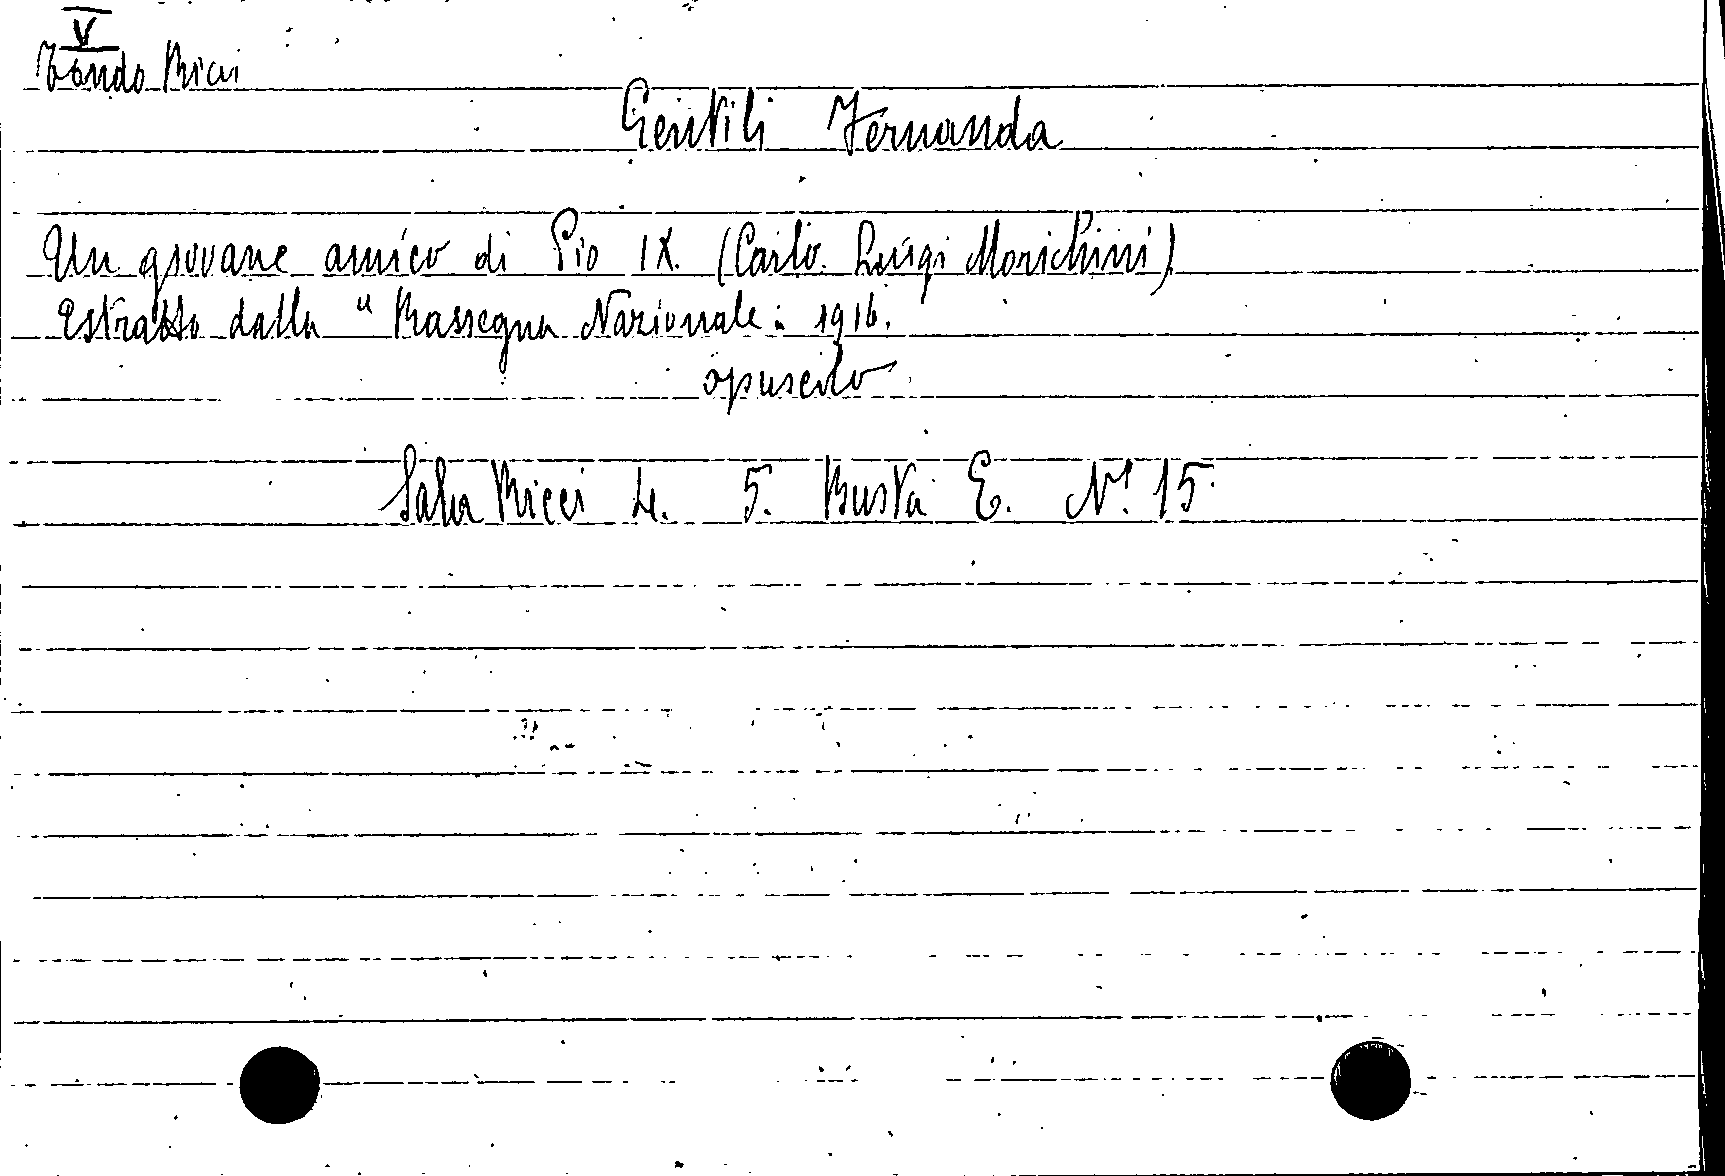 V
Fondo Ricci
Gentili Fernanda
Un giovane amico di Pio IX. (Carlo Luigi Morichini)
Estratto dalla "Rassegna Nazionale" 1916.
opuscolo
Sala Ricci L. 5. Busta E. N.º 15.